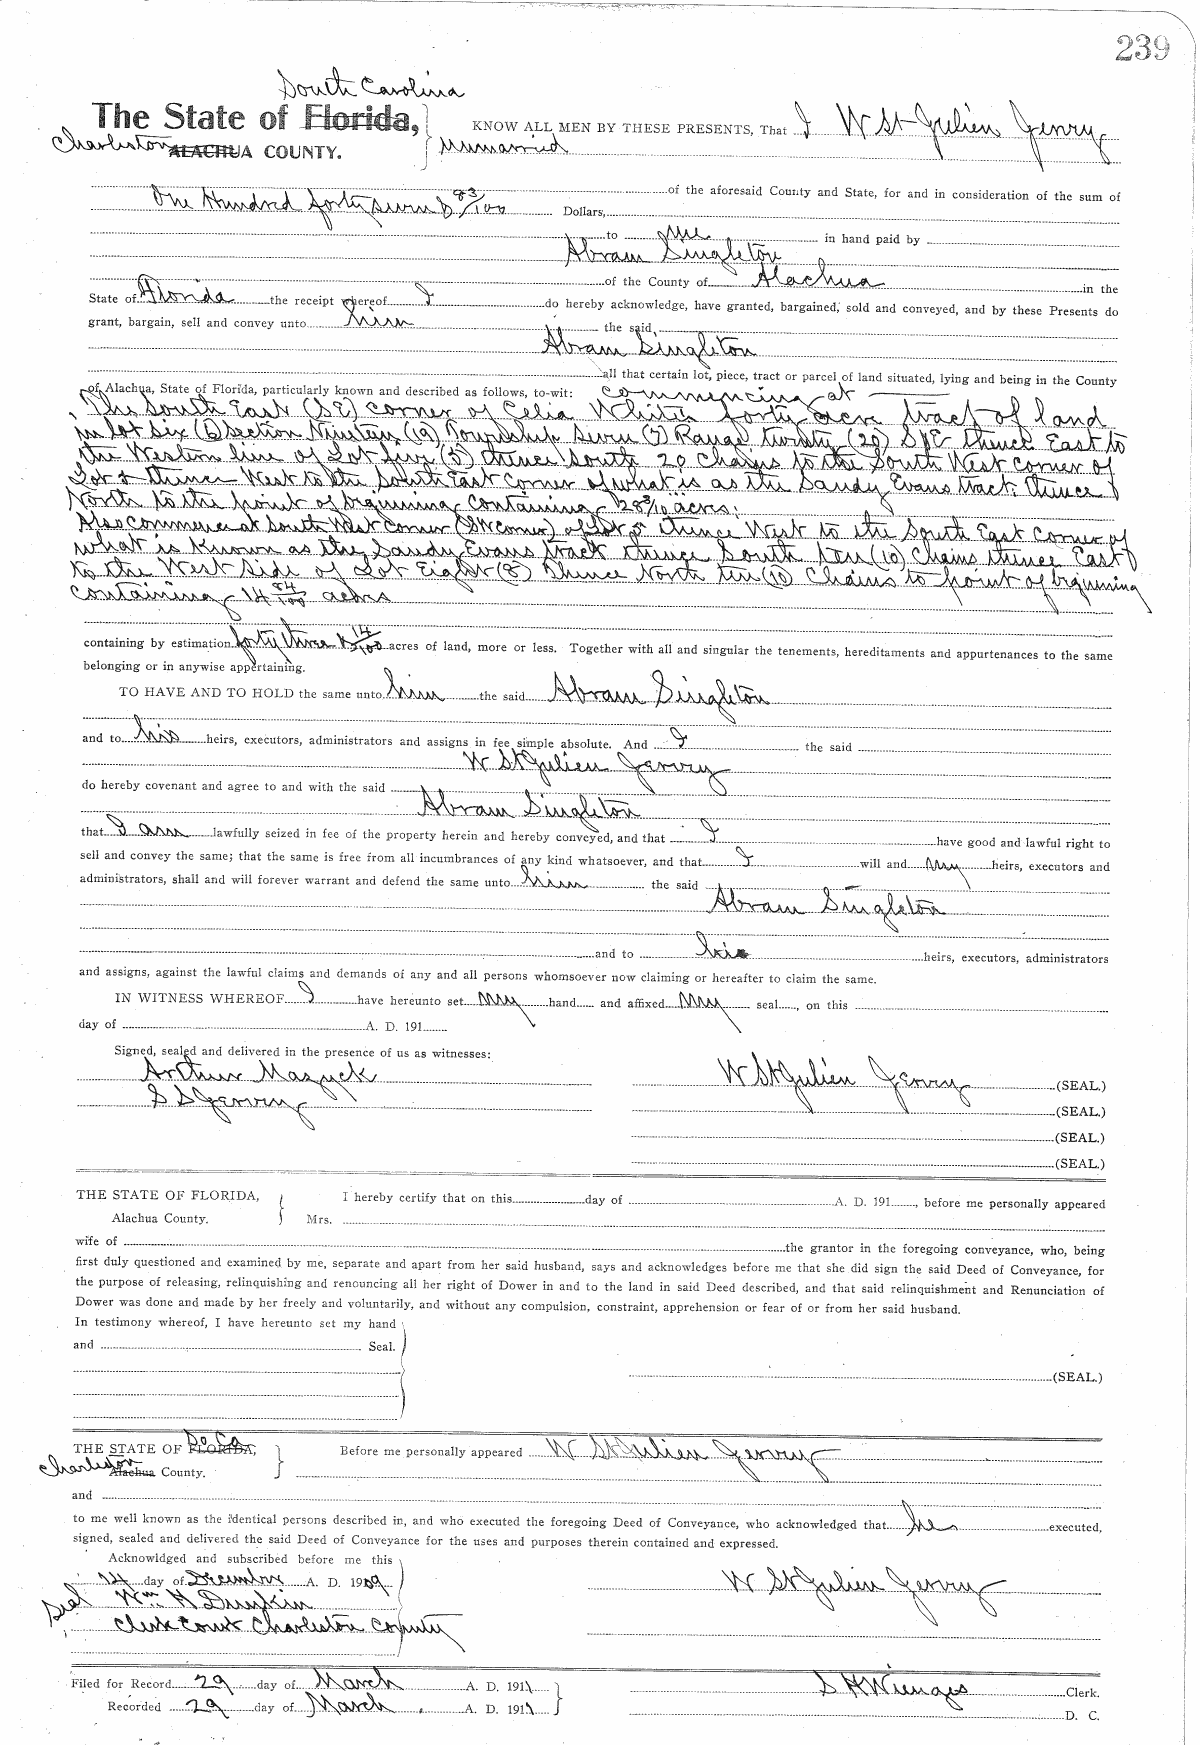 239
South Carolina
The State of Florida,
KNOW ALL MEN BY THESE PRESENTS, That I W St Julien Jervey
Charleston ALACHUA COUNTY. Unmarried
of the aforesaid County and State, for and in consideration of the sum of
One Hundred forty seven & 93/100 Dollars,
to me in hand paid by
Abram Singleton
of the County of Alachua in the
State of Florida the receipt whereof I do hereby acknowledge, have granted, bargained, sold and conveyed, and by these Presents do
grant, bargain, sell and convey unto him the said,
Abram Singleton
all that certain lot, piece, tract or parcel of land situated, lying and being in the County
of Alachua, State of Florida, particularly known and described as follows, to-wit: commencing at
The South East (SE) corner of Celia forty acre tract of land
in lot six (6) Section Nineteen (19) Township Seven (7) Range twenty (20) S&E thence East to
the Western line of Lot five (5) thence South 20 chains to the South West corner of
Lot 5 thence West to the South East corner of what is as the Sandy Evans tract, thence
North to the point of beginning containing 28 3/10 acres;
Also commence at South West Corner (SW corner) of Lot 5 thence West to the South East corner of
what is known as the Sandy Evans track thence South ten (10) Chains thence East
to the West Side of Lot Eight (8) thence North ten (10) Chains to point of beginning
containing 14 84/100 acres
containing by estimation forty three & 14/100 acres of land, more or less. Together with all and singular the tenements, hereditaments and appurtenances to the same
belonging or in anywise appertaining.
TO HAVE AND TO HOLD the same unto him the said Abram Singleton
and to his heirs, executors, administrators and assigns in fee simple absolute. And I the said
W St Julien Jervey
do hereby covenant and agree to and with the said
Abram Singleton
that I am lawfully seized in fee of the property herein and hereby conveyed, and that I have good and lawful right to
sell and convey the same; that the same is free from all incumbrances of any kind whatsoever, and that I will and my heirs, executors and
administrators, shall and will forever warrant and defend the same unto him the said
Abram Singleton
and to his heirs, executors, administrators
and assigns, against the lawful claims and demands of any and all persons whomsoever now claiming or hereafter to claim the same.
IN WITNESS WHEREOF I have hereunto set my hand and affixed my seal, on this
day of A. D. 191
Signed, sealed and delivered in the presence of us as witnesses:
Arthur Mazyck W St Julien Jervey (SEAL.)
S S Jervey (SEAL.)
(SEAL.)
(SEAL.)
THE STATE OF FLORIDA, I hereby certify that on this day of A. D. 191, before me personally appeared
Alachua County. Mrs.
wife of the grantor in the foregoing conveyance, who, being
first duly questioned and examined by me, separate and apart from her said husband, says and acknowledges before me that she did sign the said Deed of Conveyance, for
the purpose of releasing, relinquishing and renouncing all her right of Dower in and to the land in said Deed described, and that said relinquishment and Renunciation of
Dower was done and made by her freely and voluntarily, and without any compulsion, constraint, apprehension or fear of or from her said husband.
In testimony whereof, I have hereunto set my hand
and Seal.
(SEAL.)
So Ca
THE STATE OF FLORIDA, Before me personally appeared W St Julien Jervey
Charleston Alachua County.
and
to me well known as the identical persons described in, and who executed the foregoing Deed of Conveyance, who acknowledged that he executed,
signed, sealed and delivered the said Deed of Conveyance for the uses and purposes therein contained and expressed.
Acknowldged and subscribed before me this
14 day of December A. D. 1909 W St Julien Jervey
Seal Wm H Dunkin
Clerk Court Charleston County
Filed for Record 29 day of March A. D. 1911 S H Wienges Clerk.
Recorded 29 day of March, A. D. 1911 D. C.